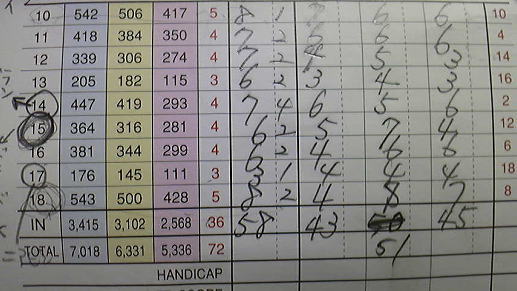 10 542 506 417 5 8 1 7 6 6 10
11 418 384 350 4 7 2 6 6 6 4
12 339 306 274 4 7 2 4 5 3 14
13 205 182 115 3 6 2 3 4 3 16
14 447 419 293 4 7 4 6 5 6 2
15 364 316 281 4 6 2 5 7 4 12
16 381 344 299 4 6 2 4 6 6 6
17 176 145 111 3 3 1 4 4 4 18
18 543 500 428 5 8 2 4 8 7 8
IN 3,415 3,102 2,568 36 58 43 45
TOTAL 7,018 6,331 5,336 72 51
HANDICAP